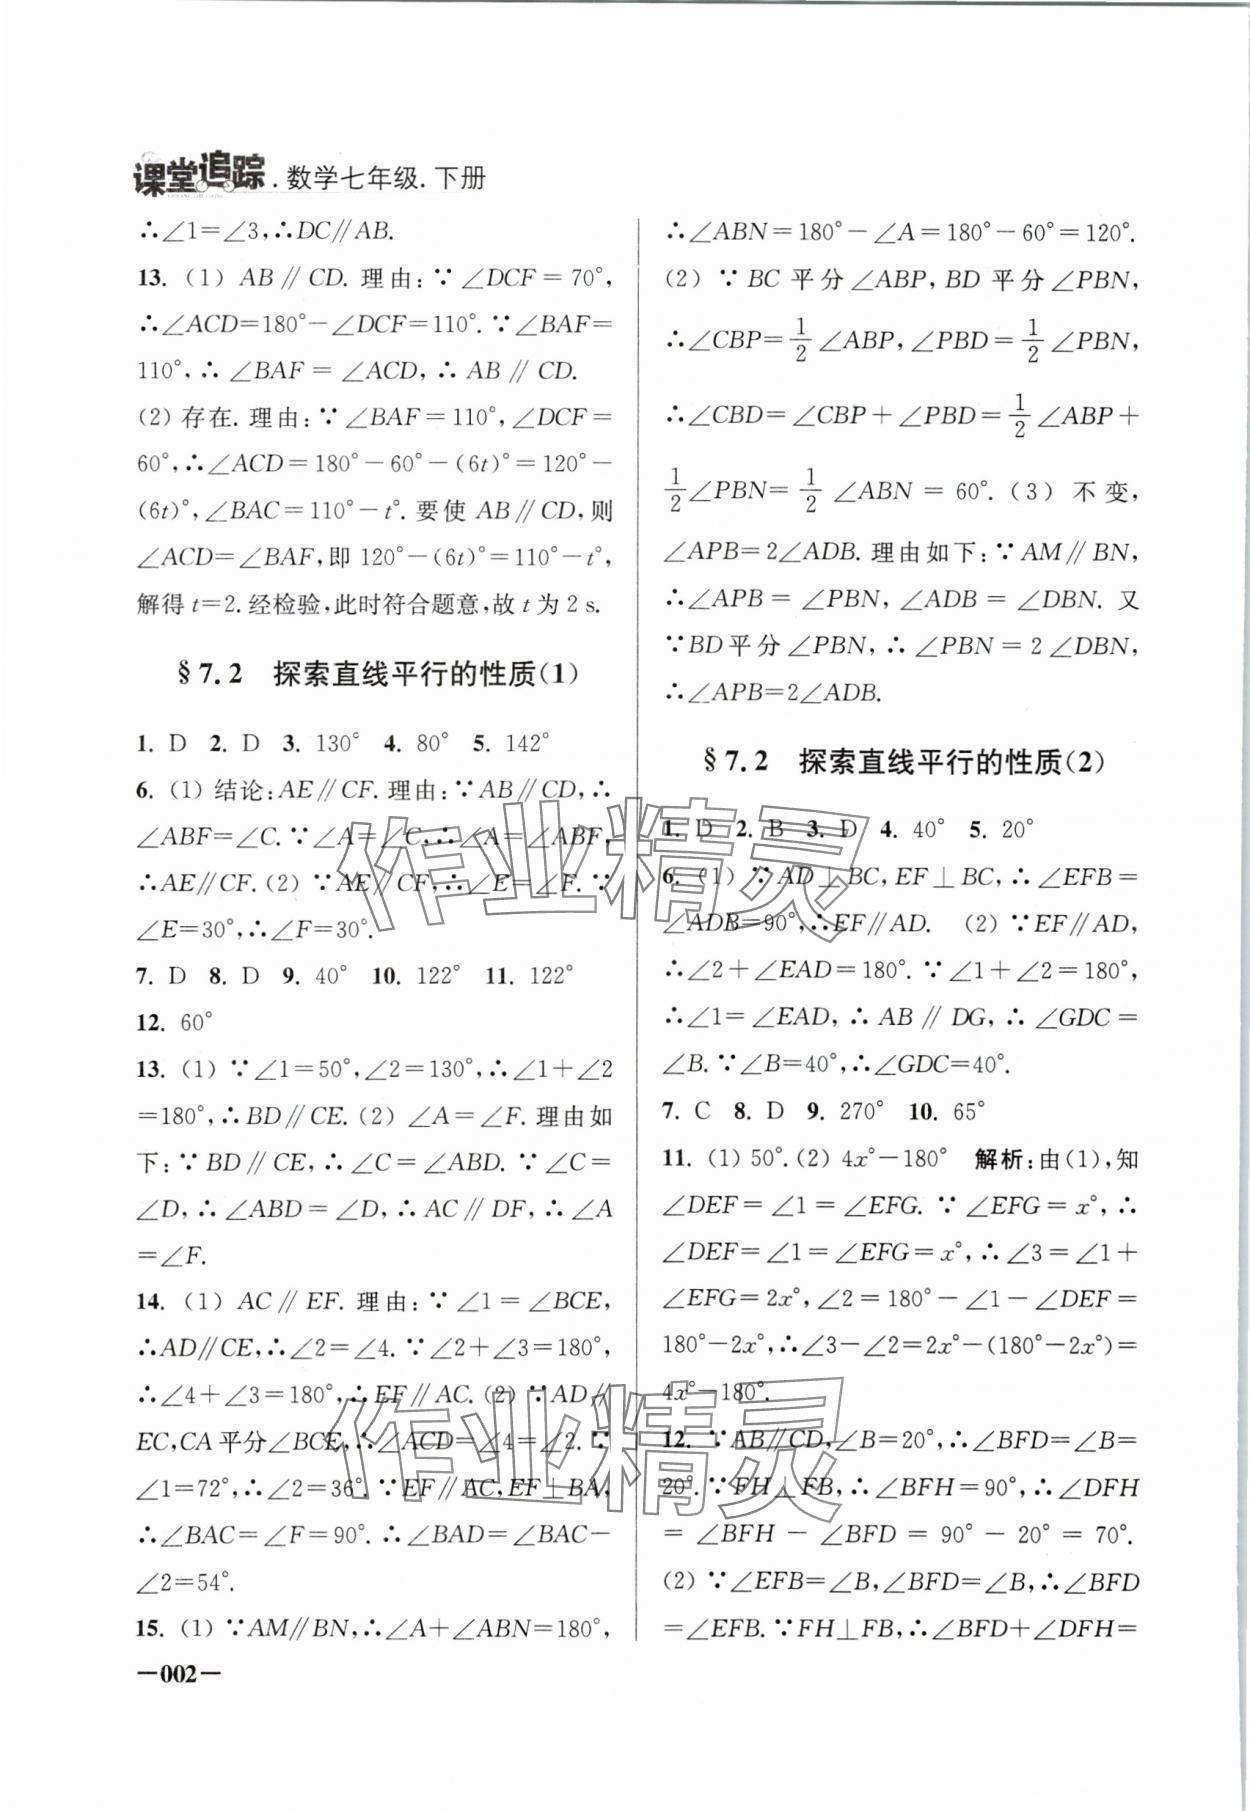 课堂追踪.数学七年级.下册
∴∠1=∠3,∴DC∥AB.
13. (1) AB∥CD. 理由:∵∠DCF=70°,
∴∠ACD=180°-∠DCF=110°.∵∠BAF=
110°,∴∠BAF=∠ACD,∴AB∥CD.
(2) 存在. 理由:∵∠BAF=110°,∠DCF=
60°,∴∠ACD=180°-60°-(6t)°=120°-
(6t)°,∠BAC=110°-t°. 要使 AB∥CD,则
∠ACD=∠BAF,即 120°-(6t)°=110°-t°,
解得 t=2. 经检验,此时符合题意,故 t 为 2 s.
§7.2 探索直线平行的性质(1)
1. D 2. D 3. 130° 4. 80° 5. 142°
6. (1) 结论:AE∥CF. 理由:∵AB∥CD,∴
∠ABF=∠C.∵∠A=∠C,∴∠A=∠ABF,
∴AE∥CF. (2) ∵AE∥CF,∴∠E=∠F.∵
∠E=30°,∴∠F=30°.
7. D 8. D 9. 40° 10. 122° 11. 122°
12. 60°
13. (1) ∵∠1=50°,∠2=130°,∴∠1+∠2
=180°,∴BD∥CE. (2) ∠A=∠F. 理由如
下:∵BD∥CE,∴∠C=∠ABD.∵∠C=
∠D,∴∠ABD=∠D,∴AC∥DF,∴∠A
=∠F.
14. (1) AC∥EF. 理由:∵∠1=∠BCE,
∴AD∥CE,∴∠2=∠4.∵∠2+∠3=180°,
∴∠4+∠3=180°,∴EF∥AC. (2) ∵AD∥
EC,CA 平分∠BCE,∴∠ACD=∠4=∠2.∵
∠1=72°,∴∠2=36°.∵EF∥AC,EF⊥BA,
∴∠BAC=∠F=90°.∴∠BAD=∠BAC-
∠2=54°.
15. (1) ∵AM∥BN,∴∠A+∠ABN=180°,
—002—
∴∠ABN=180°-∠A=180°-60°=120°.
(2) ∵BC 平分∠ABP,BD 平分∠PBN,
∴∠CBP=1/2∠ABP,∠PBD=1/2∠PBN,
∴∠CBD=∠CBP+∠PBD=1/2∠ABP+
1/2∠PBN=1/2∠ABN=60°. (3) 不变,
∠APB=2∠ADB. 理由如下:∵AM∥BN,
∴∠APB=∠PBN,∠ADB=∠DBN. 又
∵BD平分∠PBN,∴∠PBN=2∠DBN,
∴∠APB=2∠ADB.
§7.2 探索直线平行的性质(2)
1. D 2. B 3. D 4. 40° 5. 20°
6. (1) ∵AD⊥BC,EF⊥BC,∴∠EFB=
∠ADB=90°,∴EF∥AD. (2) ∵EF∥AD,
∴∠2+∠EAD=180°.∵∠1+∠2=180°,
∴∠1=∠EAD,∴AB∥DG,∴∠GDC=
∠B.∵∠B=40°,∴∠GDC=40°.
7. C 8. D 9. 270° 10. 65°
11. (1) 50°. (2) 4x°-180° 解析:由(1),知
∠DEF=∠1=∠EFG.∵∠EFG=x°,∴
∠DEF=∠1=∠EFG=x°,∴∠3=∠1+
∠EFG=2x°,∠2=180°-∠1-∠DEF=
180°-2x°,∴∠3-∠2=2x°-(180°-2x°)=
4x°-180°.
12. ∵AB∥CD,∠B=20°,∴∠BFD=∠B=
20°.∵FH⊥FB,∴∠BFH=90°,∴∠DFH
=∠BFH-∠BFD=90°-20°=70°.
(2) ∵∠EFB=∠B,∠BFD=∠B,∴∠BFD
=∠EFB.∵FH⊥FB,∴∠BFD+∠DFH=
作业精灵
作业精灵